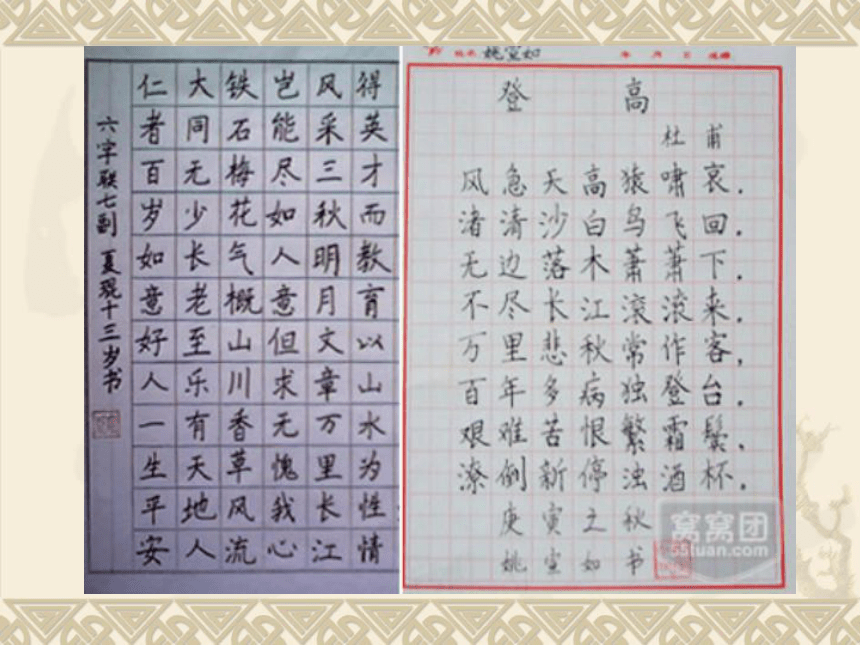 得英才而教育以山水为性情
风采三秋明月文章万里长江
岂能尽如人意但求无愧我心
铁石梅花气概山川香草风流
大同无少长老至乐有天地人
仁者百岁如意好人一生平安
六字联七副 夏琨十三岁书
姚宣如 年 月 日
登高
杜甫
风急天高猿啸哀.
渚清沙白鸟飞回.
无边落木萧萧下.
不尽长江滚滚来.
万里悲秋常作客,
百年多病独登台.
艰难苦恨繁霜鬓.
潦倒新停浊酒杯.
庚寅之秋
姚宣如书
窝窝团
55tuan.com